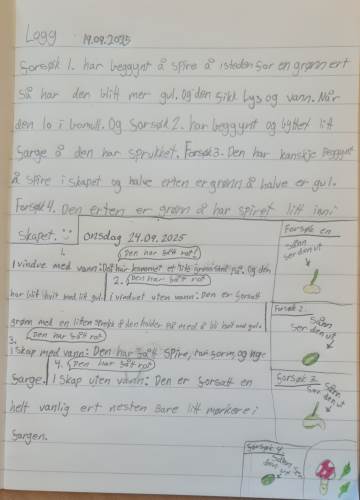 Logg 19.09.2025
Forsøk 1. har begynt å spire å isteden for en grønn ert
så har den blitt mer gul. Og den fikk lys og vann. Når
den lo i bomull. Og Forsøk 2. har begynt og byttet litt
farge å den har sprukket. Forsøk 3. Den har kanskje begynt
å spire i skapet og halve erten er grønn å halve er gul.
Forsøk 4. Den erten er grønn å har spiret litt inni
skapet. :)
onsdag 24.09.2025
1.
Den har fått rot!
I vindue med vann: Det har kommet et lite på. Og den
har blitt hvit med litt gul.
2.
Den har fått rot
I vinduet uten vann: Den er forsatt
grønn med en liten å den holder på med å bli helt gul.
3.
Den har fått rot
I skap med vann: Den har fått spire, form, og
farge.
4.
Den har fått rot
I skap uten vann: Den er forsatt en
helt vanlig ert nesten bare litt mørkere i
fargen.
Forsøk en
sånn
ser den ut
Forsøk 2
sånn
ser den ut
Forsøk 3
sånn
ser den ut
Forsøk 4
sånn ser
den ut